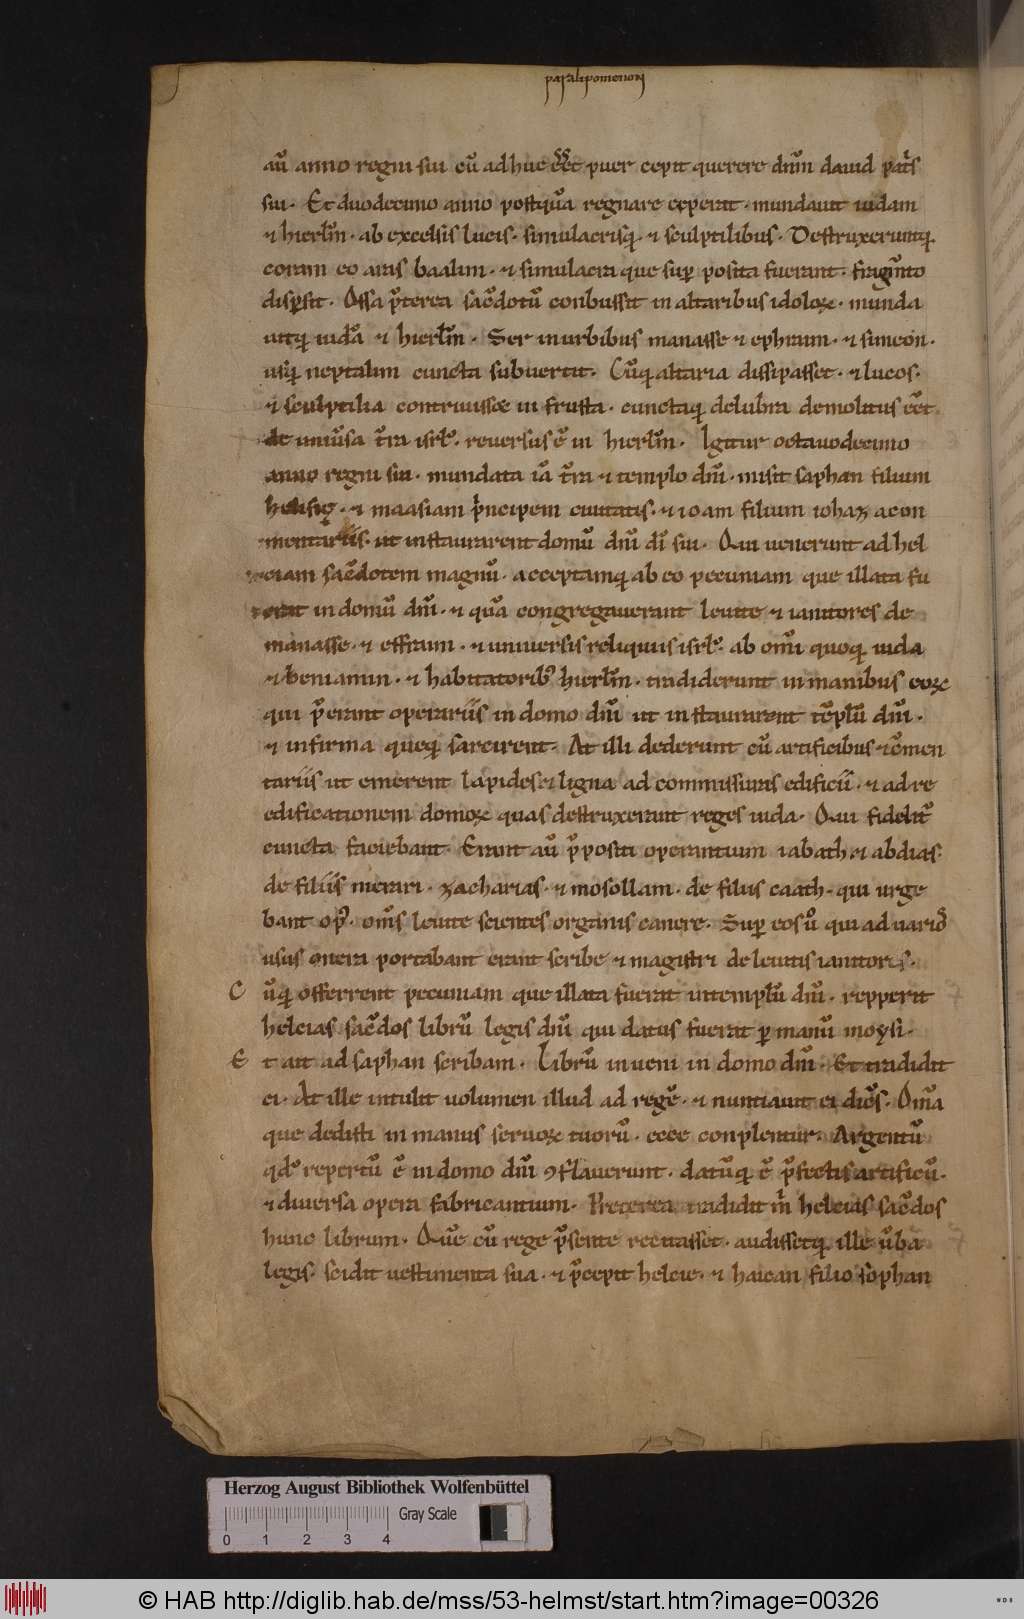 paralipomenon
aū anno regni sui cū adhuc eēt puer cepit querere dn̄m dauid patris
sui. Et duodecimo anno postquā regnare ceperat. mundauit iudam
⁊ hierl̄m. ab excelsis lucis. simulacrisq; ⁊ sculptilibus. Destruxeruntq;
coram eo aras baalim. ⁊ simulacra que sup posita fuerant. fragm̄to
dispersit. Ossa p̄terea sac̄dotū conbussit in altaribus idoloꝝ. munda
uitq; iudā ⁊ hierl̄m. Sed in urbibus manasse ⁊ ephraim. ⁊ simeon.
usq; neptalim cuncta subuertit. Cūq; altaria dissipasset. ⁊ lucos.
⁊ sculptilia contriuisset in frusta. cunctaq; delubra demolitus eēt
de uniūsa t̄ra isrl̄. reuersus ē in hierl̄m. Igitur octauodecimo
anno regni sui. mundata iā t̄ra ⁊ templo dn̄i. misit saphan filium
helisię. ⁊ maasiam p̄ncipem ciuitatis. ⁊ ioam filium iohaz acon
mentariis. ut instaurarent domū dn̄i dī sui. Qui uenerunt ad hel
ciam sac̄dotem magnū. acceptamq; ab eo pecuniam que illata fu
erat in domū dn̄i. ⁊ quā congregauerant leuite ⁊ ianitores de
manasse. ⁊ effraim. ⁊ uniuersis reliquiis isrl̄. ab om̄i quoq; iuda
⁊ beniamin. ⁊ habitatorib; hierl̄m. tradiderunt in manibus eoꝝ
qui p̄erant operariis in domo dn̄i ut instaurarent tēplū dn̄i.
⁊ infirma queq; sarcirent. At illi dederunt cū artificibus ⁊ cōmen
tariis ut emerent lapides ⁊ ligna ad commissuras edificii. ⁊ ad re
edificationem domoꝝ quas destruxerant reges iuda. Qui fidelit̄
cuncta faciebant. Erant aū p̄positi operantium iabath ⁊ abdias.
de filiis merari. zacharias. ⁊ mosollam. de filiis caath. qui urge
bant op̄. om̄s leuite scientes organis canere. Sup eos ū qui ad uarios
usus onera portabant erant scribe ⁊ magistri de leuitis ianitores.
Cūq; offerrent pecuniam que illata fuerat in templū dn̄i. repperit
helcias sac̄dos librū legis dn̄i qui datus fuerat p manū moysi.
Et ait ad saphan scribam. Librū inueni in domo dn̄i. Et tradidit
ei. At ille intulit uolumen illud ad regē. ⁊ nuntiauit ei dicēs. Om̄a
que dedisti in manus seruoꝝ tuorū. ecce conplentur. Argentū
qd̄ repertū ē in domo dn̄i ꝯflauerunt. datūq; ē p̄fectis artificū.
⁊ diuersa opera fabricantium. Preterea tradidit m̄ helcias sac̄dos
hunc librum. Quē cū rege p̄sente recitasset. audissetq; ille ūba
legis. scidit uestimenta sua. ⁊ p̄cepit helcie. ⁊ haican filio sophan
Herzog August Bibliothek Wolfenbüttel
Gray Scale
0 1 2 3 4
© HAB http://diglib.hab.de/mss/53-helmst/start.htm?image=00326